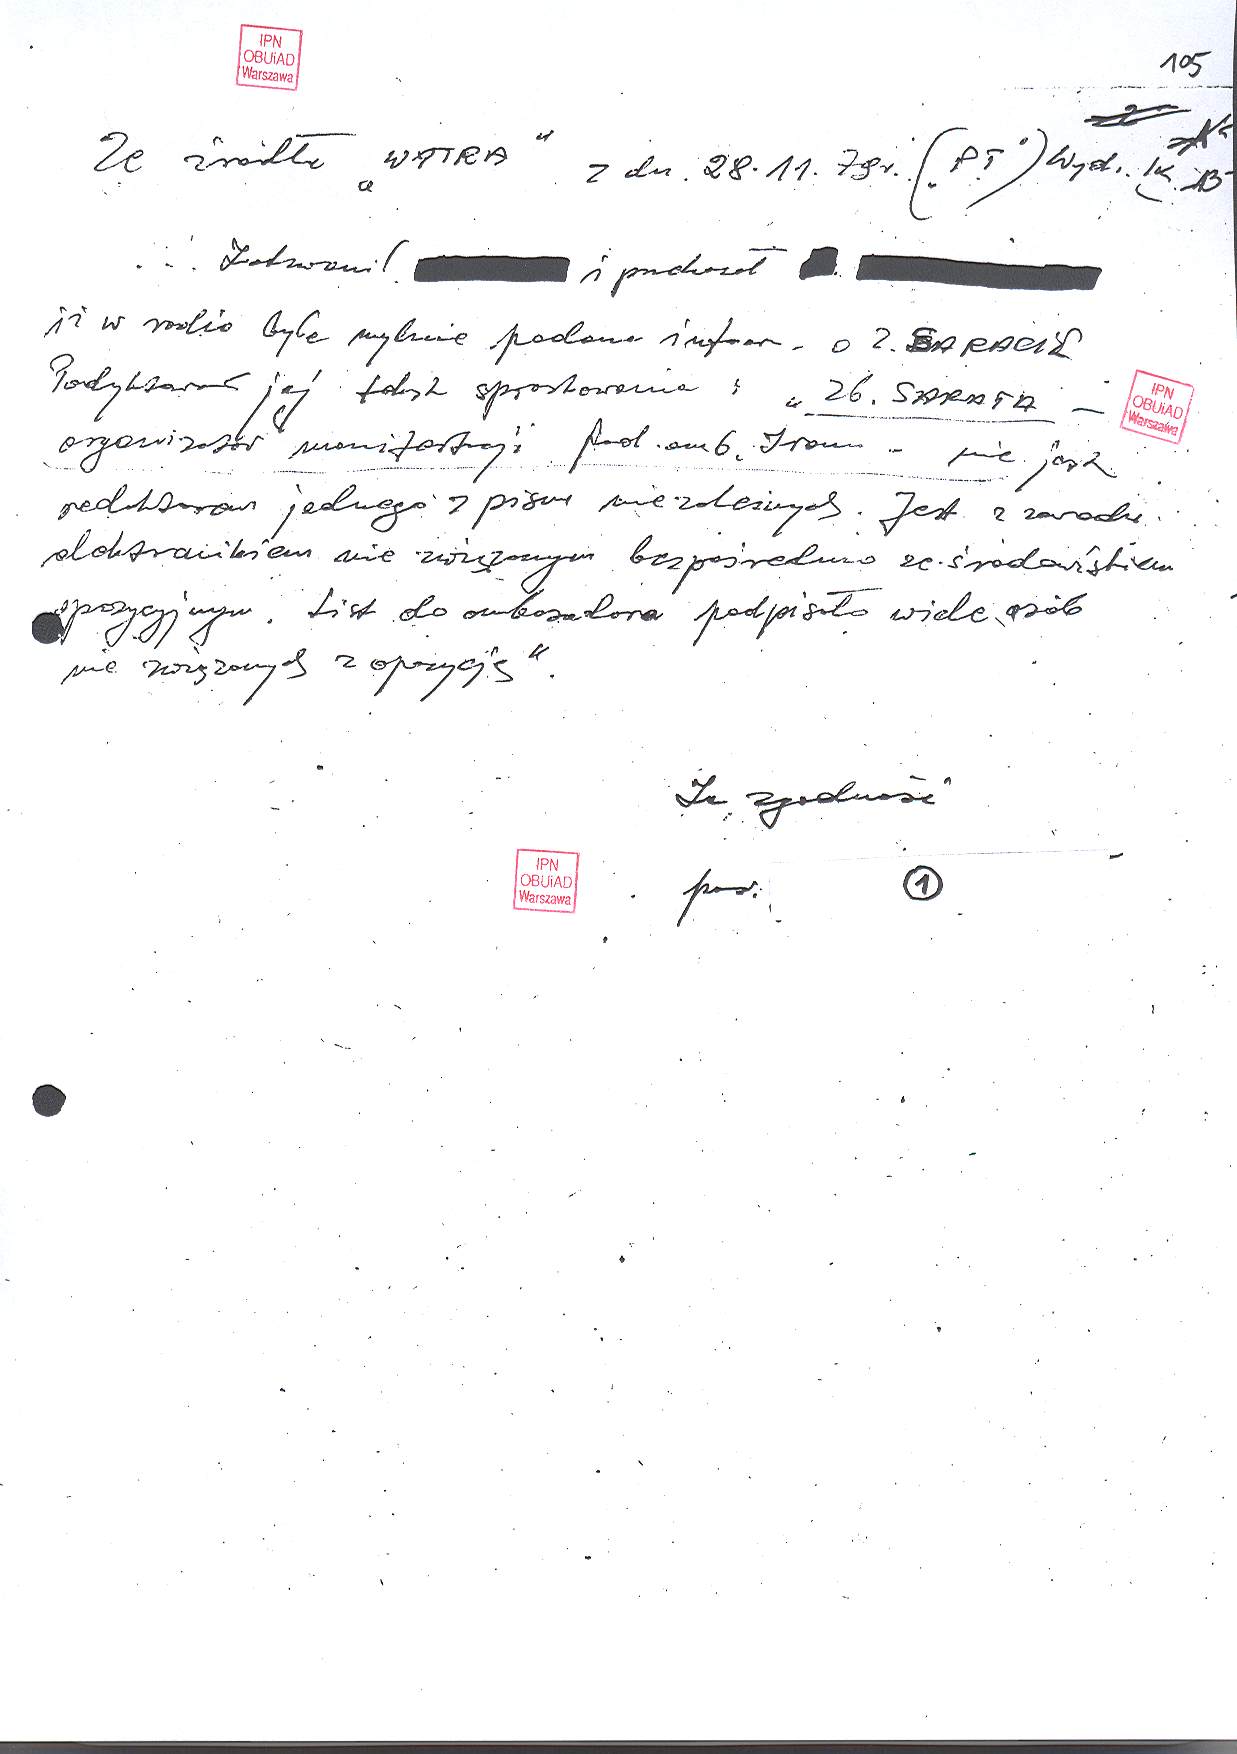 IPN
OBUiAD
Warszawa
105
Ze źródła „WATRA" z dn. 28.11.79r. („PT") Wydz. IX
... Zadzwonił i przekazał
iż w radio była mylnie podana inform. o Z. SARACIE
Podyktował jej tekst sprostowania: „Zb. SARATA –
organizator manifestacji pod amb. Iranu – nie jest
redaktorem jednego z pism niezależnych. Jest z zawodu
elektronikiem nie związanym bezpośrednio ze środowiskiem
opozycyjnym. List do ambasadora podpisało wiele osób
nie związanych z opozycją".
IPN
OBUiAD
Warszawa
Za zgodność
IPN
OBUiAD
Warszawa
1